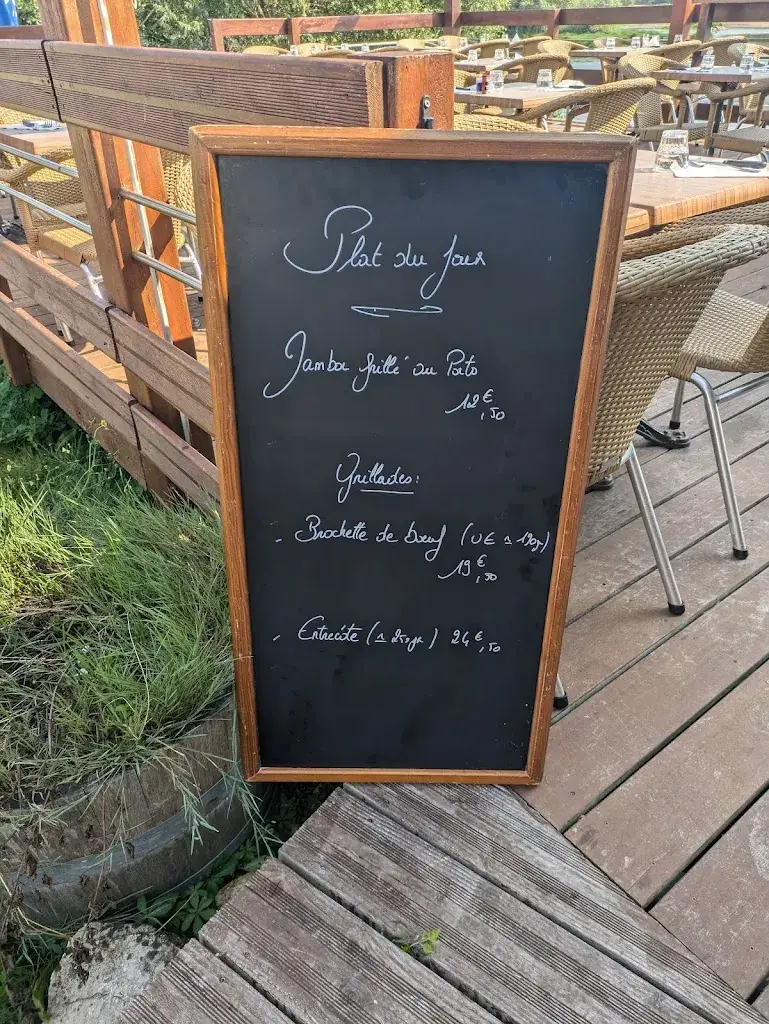 Plat du Jour
Jambon grillé au Porto
12€,50
Grillades:
- Brochette de bœuf (UE ≃ 190gr)
19€,50
- Entrecôte (≃ 250gr) 24€,50